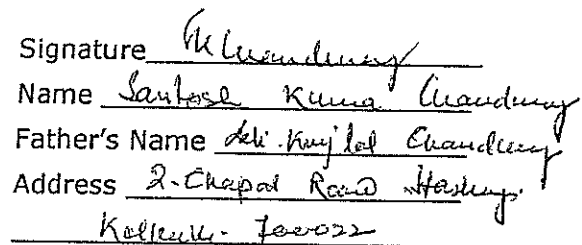 Signature SKChaudhury
Name Santosh Kumar Chaudhury
Father's Name Late. Kunj Lal Chaudhury
Address 2. Chapel Road Hastings.
Kolkata - 700022